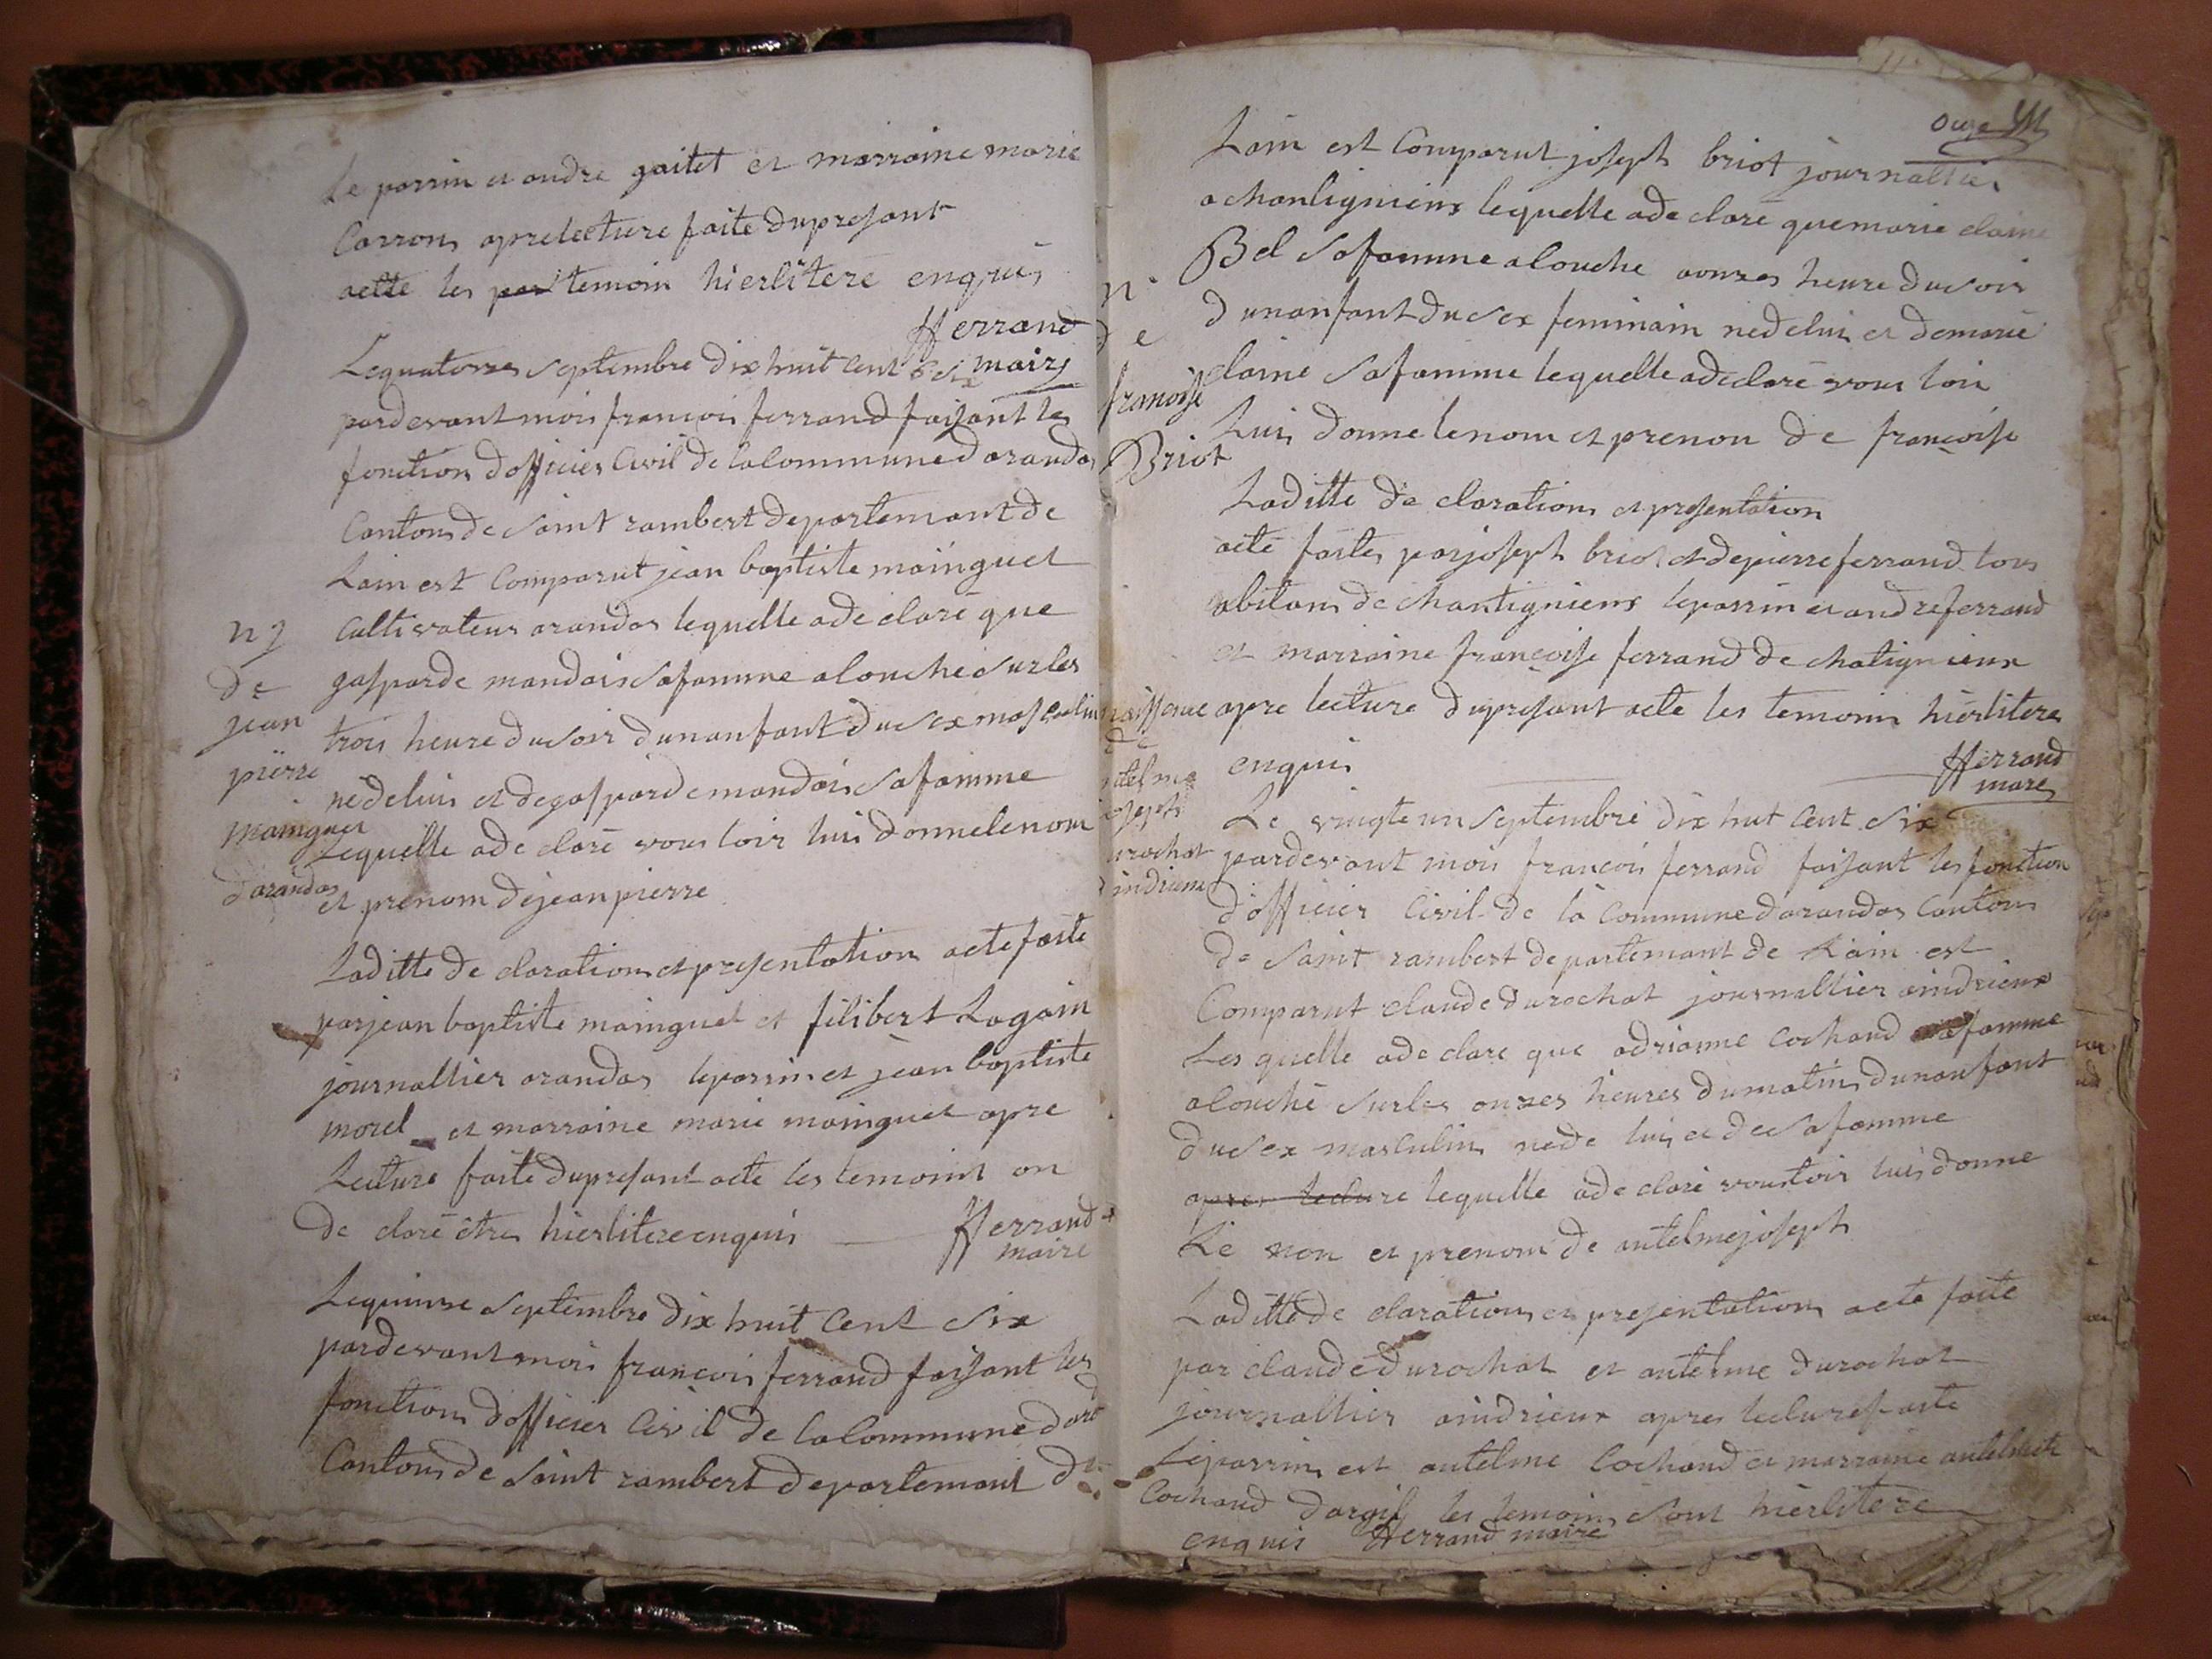 Le parrin et andre gaitet et marraine marie
Carron apre lecture faite du presant
acte les temoin hierlitere enquis
fferrand
maire
Le quatorze septembre dix huit cent six
pardevant moi francois ferrand faisant les
fonction dofficier Civil de la Commune darandas
Canton de Saint rambert departemant de
Lain est Comparut jean baptiste mainguet
Cultivateur arandas lequelle a de claré que
gasparde mandais sa famme a Couché sur les
trois heure du soir dun anfant du sex masculin
né de lui et de gasparde mandais sa famme
Lequelle a de claré vous loir lui donne le nom
et prenom de jean pierre
n
de
jean
pierre
mainguet
darandas
La ditte de claration et presentation acte faite
par jean baptiste mainguet et filibert Lagain
journallier arandas le parrin et jean baptiste
morel et marraine marie mainguet apre
Lecture faite du presant acte les temoint on
de claré être hierlitere enquis fferrand
maire
Le quinze septembre dix huit Cent six
pardevant moi francois ferrand faisant les
fonction dofficier Civil de la Commune dara
Canton de Saint rambert departemant de
onze
Lain est Comparut joseph briot journallier
a chantignieux lequelle a de claré que marie claine
Bel sa famme a Couche a onzes heure du soir
dun anfant du sex feminain ne de lui et de marie
claine sa famme lequelle a de claré vous loir
Lui donne le nom et prenon de françoise
n
de
franoise
Briot
La ditte de claration et presentation
acte faites par joseph briot et de pierre ferrand tous
abitans de chantignieux le parrin et andre ferrand
et marraine françoise ferrand de chatignieux
apre lecture du presant acte les temoin hierlitere
enquis
fferrand
mare
Le vingte un septembre dix huit Cent six
pardevant moi francois ferrand faisant les fonction
d'officier Civil de la Commune darandas Canton
de Saint rambert departemant de Lain est
Comparut claude durochat journallier aindrieux
Les quelle a de clare que adrianne Cochand sa famme
a Couché sur les onzes heures du matin dun anfant
du sex masculin ne de lui et de sa famme
apres lecture lequelle a de claré vous loir lui donne
Le non et prenom de antelme joseph
naissence
de
ntelme
oseph
urochat
dindrieux
La ditte de claration et presentation acte faite
par claude durochat et antelme durochat
journallier aindrieux apres lecture faite
Le parrin est antelme Cochand et marraine
Cochand dargis les temoin sont hierlitere
enquis fferrand maire